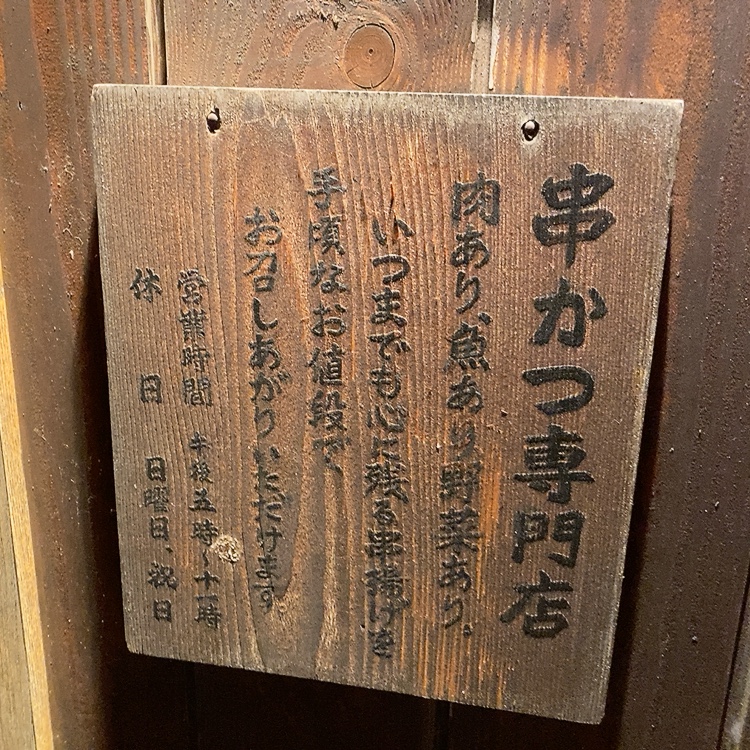 串かつ専門店
肉あり、魚あり、野菜あり。
いつまでも心に残る串揚げを
手頃なお値段で、
お召しあがりいただけます。
営業時間 午後五時〜十一時
休日 日曜日、祝日